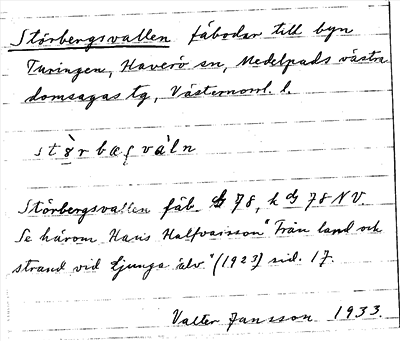 Störbergsvallen fäbodar till byn
Turingen, Haverö sn, Medelpads västra
domsagas tg, Västernorrl. l.
Störbergsvallen fäb. 78, k 78 NV.
Se härom Hans Halfvarsson "Från land och
strand vid Ljunga älv" (1923) sid. 17.
Valter Jansson 1933.